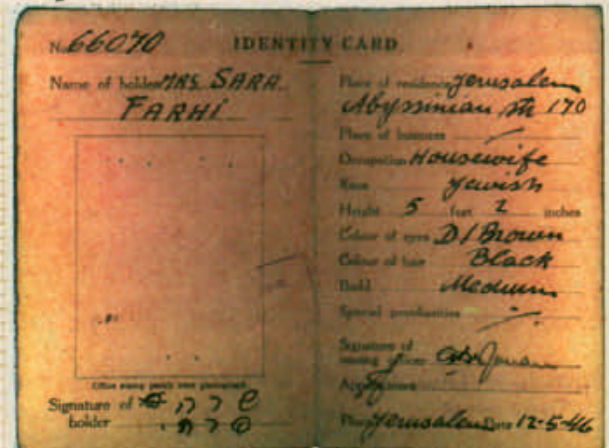 No. 66070
IDENTITY CARD
Name of holder MRS. SARA
FARHI
Office stamp partly over photograph
Signature of holder
שרה
Place of residence Jerusalem
Abyssinian Str 170
Place of business
Occupation Housewife
Race Jewish
Height 5 feet 2 inches
Colour of eyes D/Brown
Colour of hair Black
Build Medium
Special peculiarities
Signature of
issuing officer
Appointment
Place Jerusalem Date 12-5-46